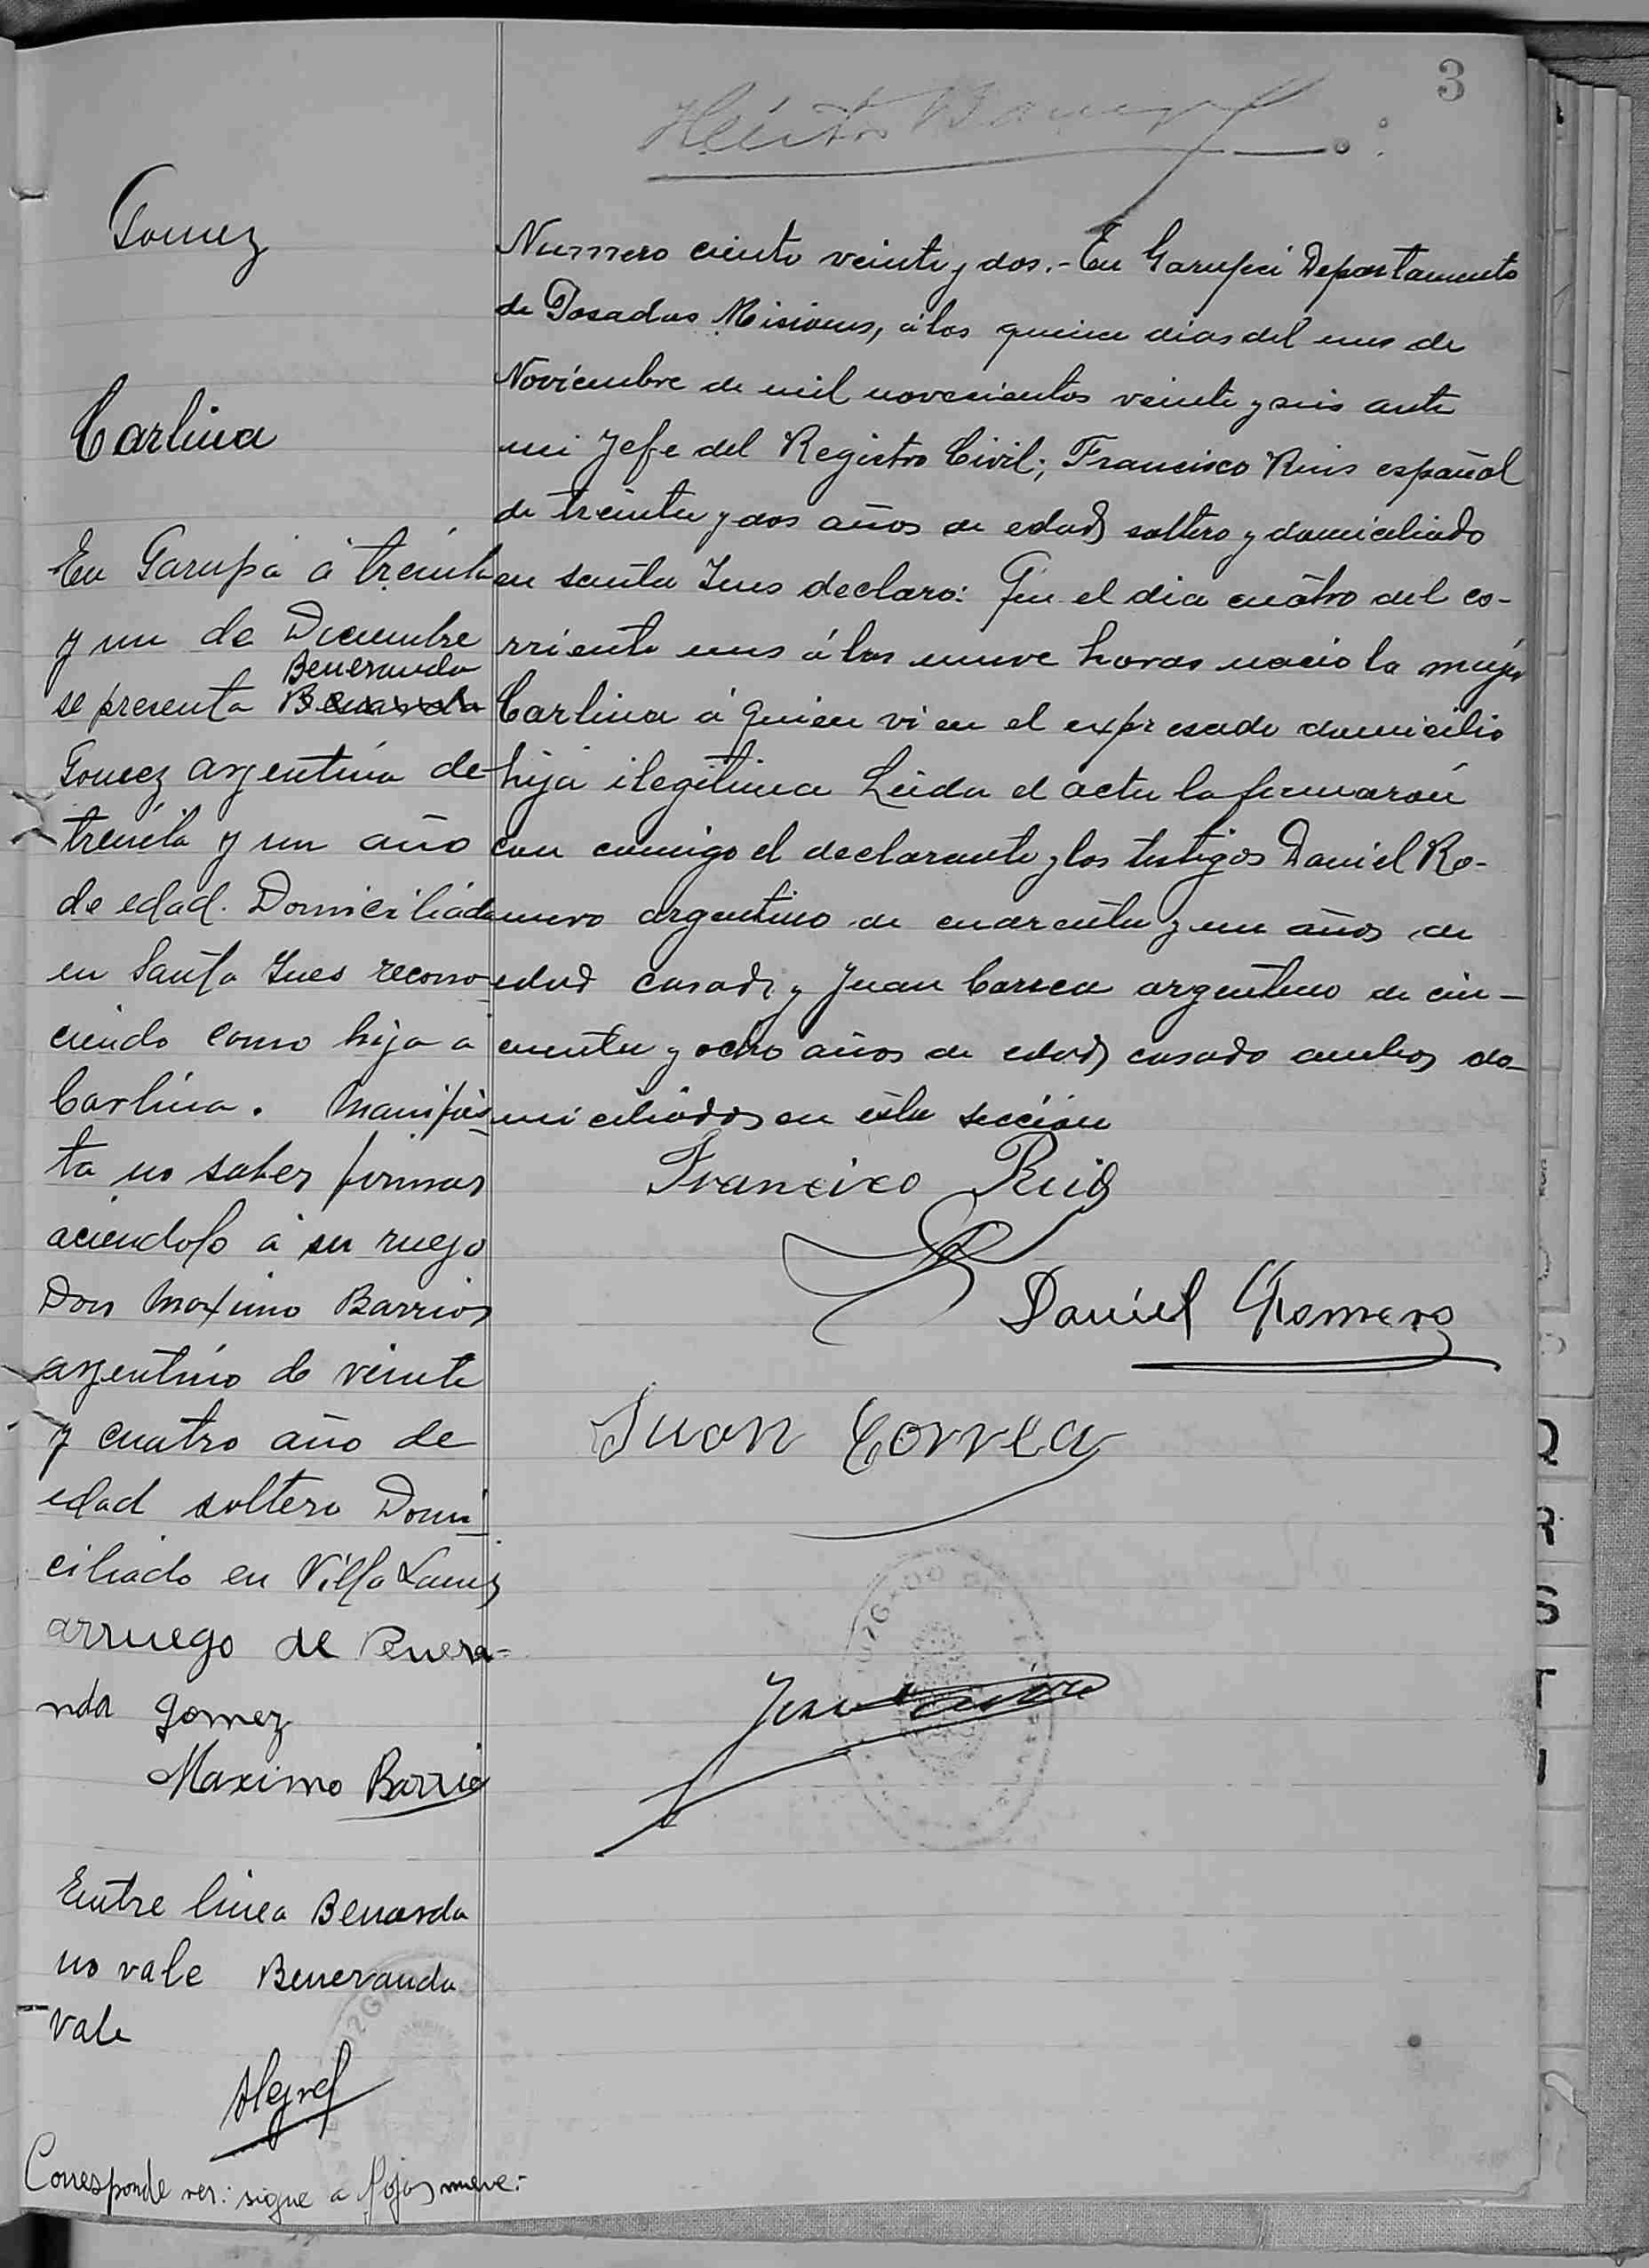 3
Gomez
Carlina
Numero ciento veinte y dos.- En Garupá Departamento
de Posadas Misiones, á los quince dias del mes de
Noviembre de mil novecientos veinte y seis ante
mi Jefe del Registro Civil; Francisco Ruis español
de treinta y dos años de edad soltero y domiciliado
en santa Ines declaro: Que el dia cuátro del co-
rriente mes á las nueve horas nacio la mujer
Carlina á quien vi en el expresado domicilio
hija ilegitima Leida el acta la firmarón
con cumigo el declarante y los testigos Daniel Ro-
mero argentino de cuarenta y un años de
edad casado y Juan Correa argentino de cin-
cuenta y ocho años de edad casado ambos do-
miciliados en ésta sección
Francisco Ruiz
Daniel Romero
Juan Correa
En Garupá á treinta
y un de Diciembre
Beneranda
se presenta Benarda
Gomez argentina de
treinta y un año
de edad. Domiciliada
en Santa Ines recono-
ciendo como hija a
Carlina. Manifies-
ta no saber firmar
aciendolo á su ruego
Don Maximo Barrios
argentino de veinte
y cuatro año de
edad soltero Domi-
ciliado en Villa Lanus
arruego de Benera-
nda Gomez
Maximo Barrio
Entre linea Benarda
no vale Beneranda
vale
Corresponde ver: sigue a fojas nueve.-
JUZGADO DE